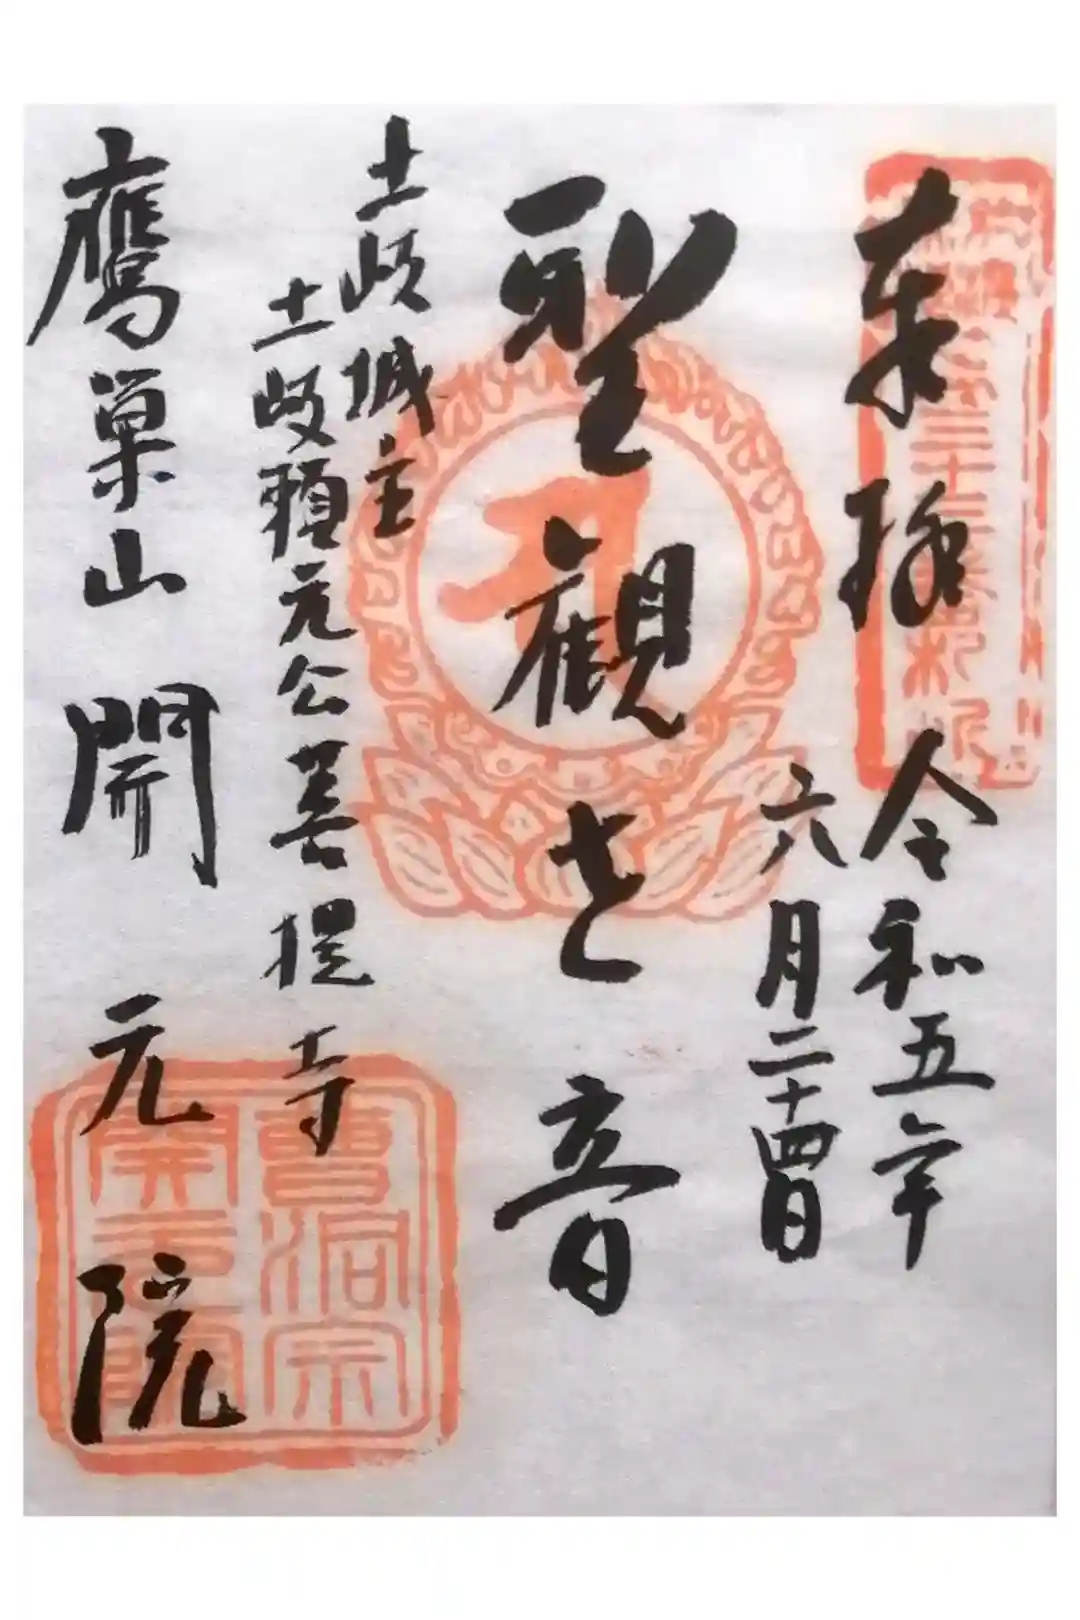 奉拝 令和五年
六月二十四日
聖觀世音
土岐城主
土岐頼元公菩提寺
鷹巣山 開元院
曹洞宗
開元院